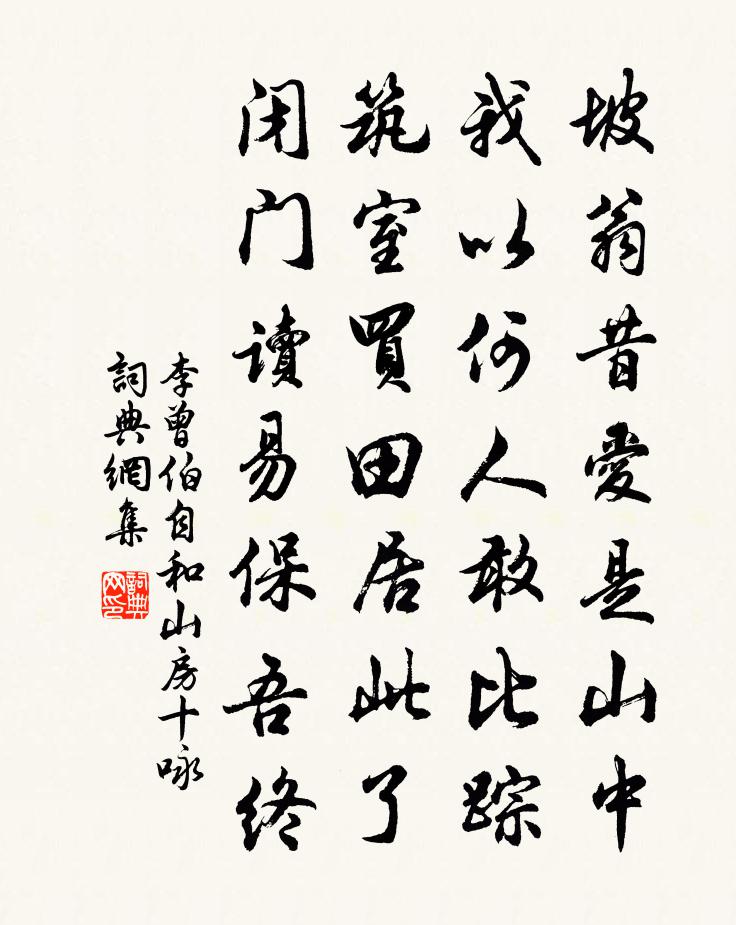 坡翁昔愛是山中
我以何人敢比踪
筑室買田居此了
闭门讀易保吾终
李曾伯自和山房十咏
詞典網集
詞典网印